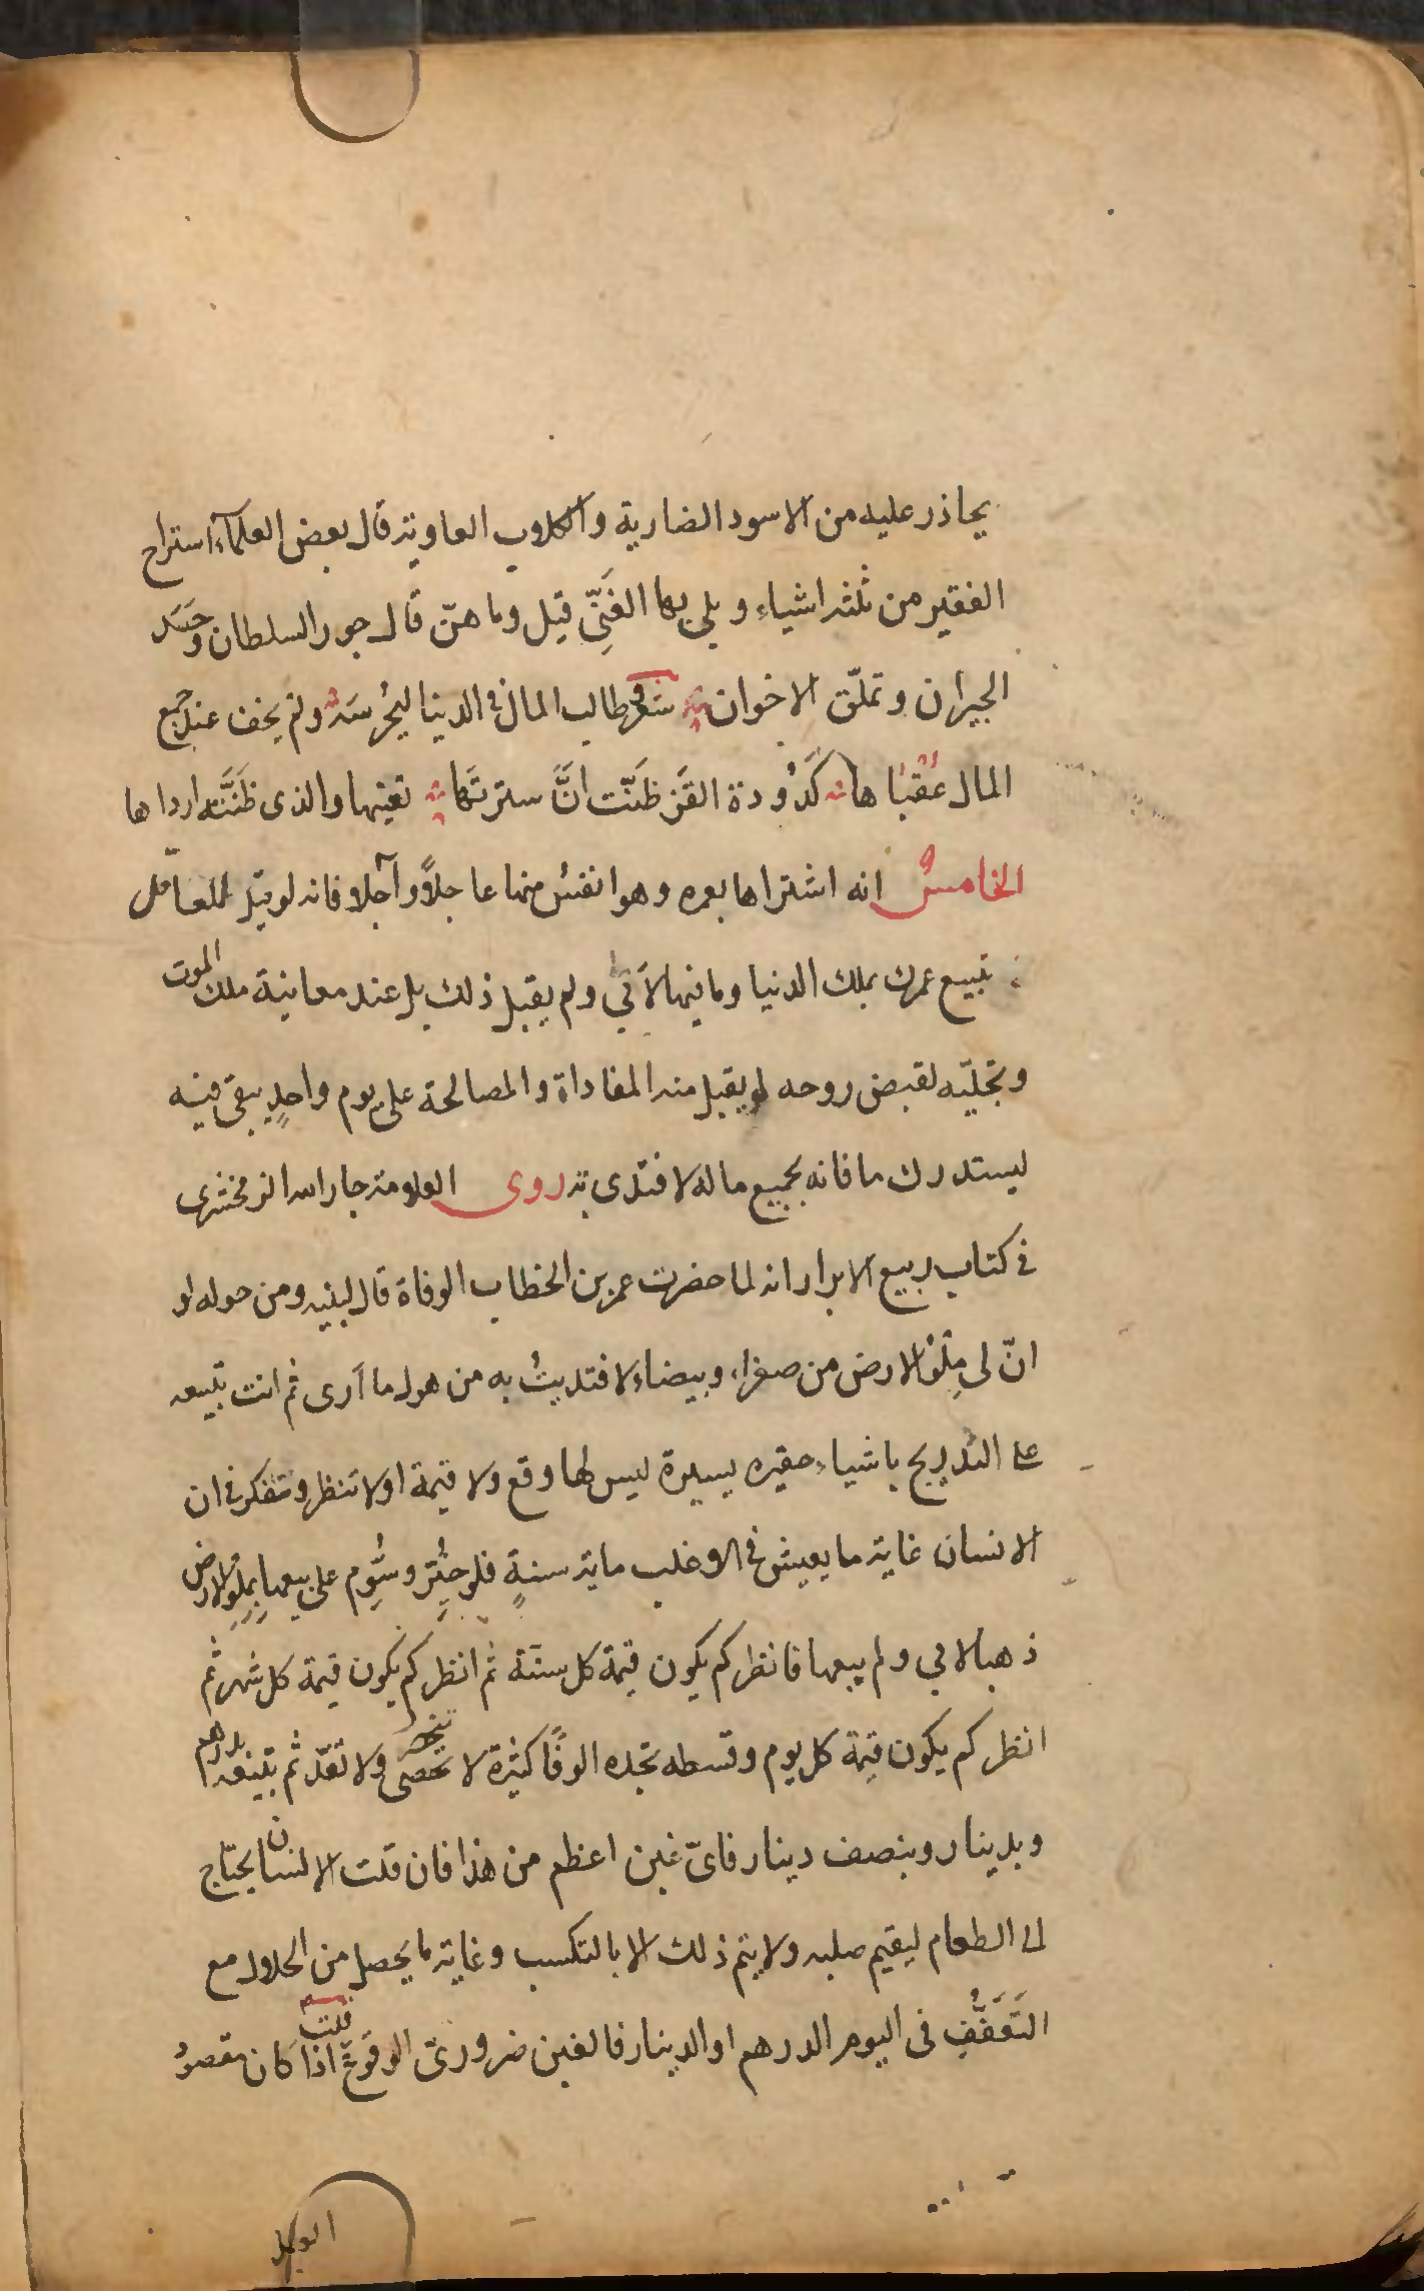 يحاذر عليه من الاسود الضارية والكلاب العاوية قال بعض العلماء استراح
الفقير من ثلثة اشياء وبلى بها الغَنِّى قيل وما هنّ قال جور السلطان وحَسَد
الجيران وتملّق الاخوان شعر طالب المال فى الدينا ليحرُسَه ولم يخف عند جمع
المال عُقْبَاها كَدُودة القَز ظنّت انَّ سترتَها تعينها والذى ظَنَّته ارداها
الخامسُ انه اشتراها بعمره وهو انفسُ منها عاجلاً وآجلا فانه لو قيل للعاقل
تبيع عمرك بملك الدنيا وما فيها لاَبَى ولم يقبل ذلك بل عند معاينة ملك الموت
وتجليّه لقبض روحه لو يقبل منه المفاداة والمصالحة على يوم واحدٍ يبقى فيه
ليستدرك ما فاته بجميع ماله لافتدى به روى العلامة جار الله الزمخشرى
فى كتاب ربيع الابرار انه لما حضرت عمر بن الخطاب الوفاة قال لبنيه ومن حوله لو
انّ لى مِلْؤ الارض من صفراء وبيضاء لافتديتُ به من هول ما آرى ثم انت تبيعه
على التدريج باشياء حقيره يسيرة ليس لها وقع ولا قيمة اولا تنظر وتتفكر فى ان
الانسان غاية ما يعيش فى الاغلب ماية سنةٍ فلو خُيِّر وسُّوِم على بيعها بِملؤِ الارض
ذهبا لابى ولم يبعها فانظر كم يكون قيمة كل سنة ثم انظر كم يكون قيمة كل شهر ثم
انظر كم يكون قيمة كل يوم وقسطه تجده الوفًا كثيرة لا تحصى ولا تعدّ ثم تبيعه بدرهم
وبدينار وبنصف دينار فاىّ غبن اعظم من هذا فان قلت الانسان يحتاج
الى الطعام ليقيم صلبه ولا يتم ذلك الا بالتكسب وغاية ما يحصل من الحلال مع
التَعَفُّفِ فى اليوم الدرهم او الدينار فالغبن ضرورىّ الوقوع قلت اذا كان مقصودُ